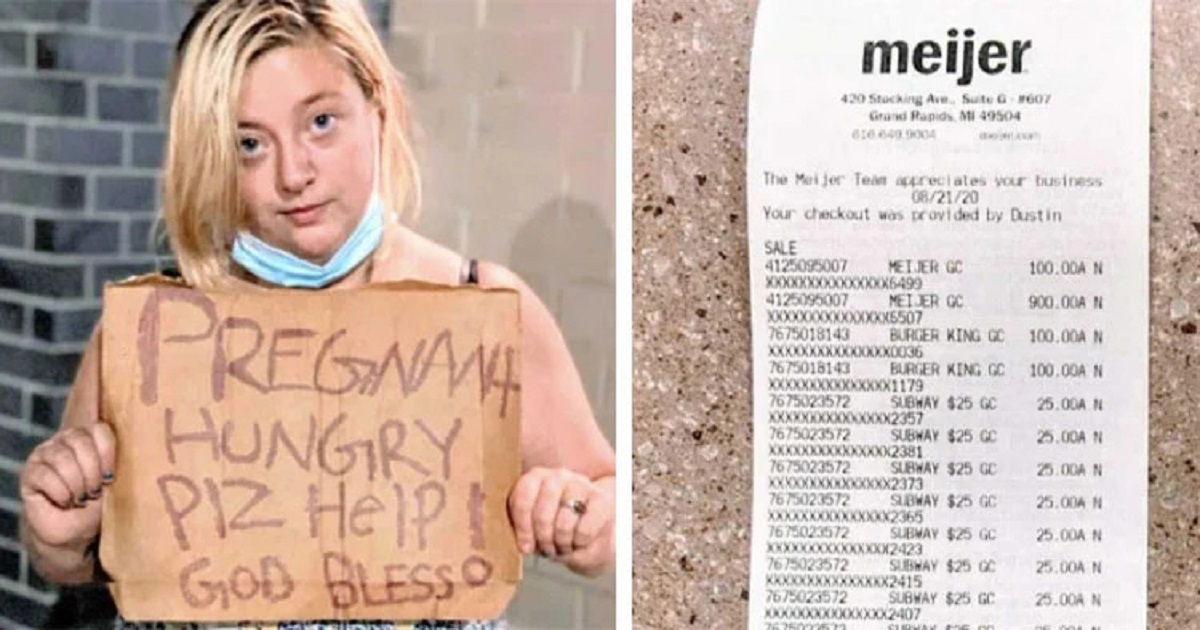 PREGNANT
HUNGRY
PlZ HelP!
GOD BLESS!
meijer
420 Stocking Ave., Suite G - #607
Grand Rapids, MI 49504
616.649.9004 meijer.com
The Meijer Team appreciates your business
08/21/20
Your checkout was provided by Dustin
SALE
4125095007 MEIJER GC 100.00A N
XXXXXXXXXXXXXXX6499
4125095007 MEIJER GC 900.00A N
XXXXXXXXXXXXXXX6507
7675018143 BURGER KING GC 100.00A N
XXXXXXXXXXXXXXX0036
7675018143 BURGER KING GC 100.00A N
XXXXXXXXXXXXXXX1179
7675023572 SUBWAY $25 GC 25.00A N
XXXXXXXXXXXXXXX2357
7675023572 SUBWAY $25 GC 25.00A N
XXXXXXXXXXXXXXX2381
7675023572 SUBWAY $25 GC 25.00A N
XXXXXXXXXXXXXXX2373
7675023572 SUBWAY $25 GC 25.00A N
XXXXXXXXXXXXXXX2365
7675023572 SUBWAY $25 GC 25.00A N
XXXXXXXXXXXXXXX2423
7675023572 SUBWAY $25 GC 25.00A N
XXXXXXXXXXXXXXX2415
7675023572 SUBWAY $25 GC 25.00A N
XXXXXXXXXXXXXXX2407